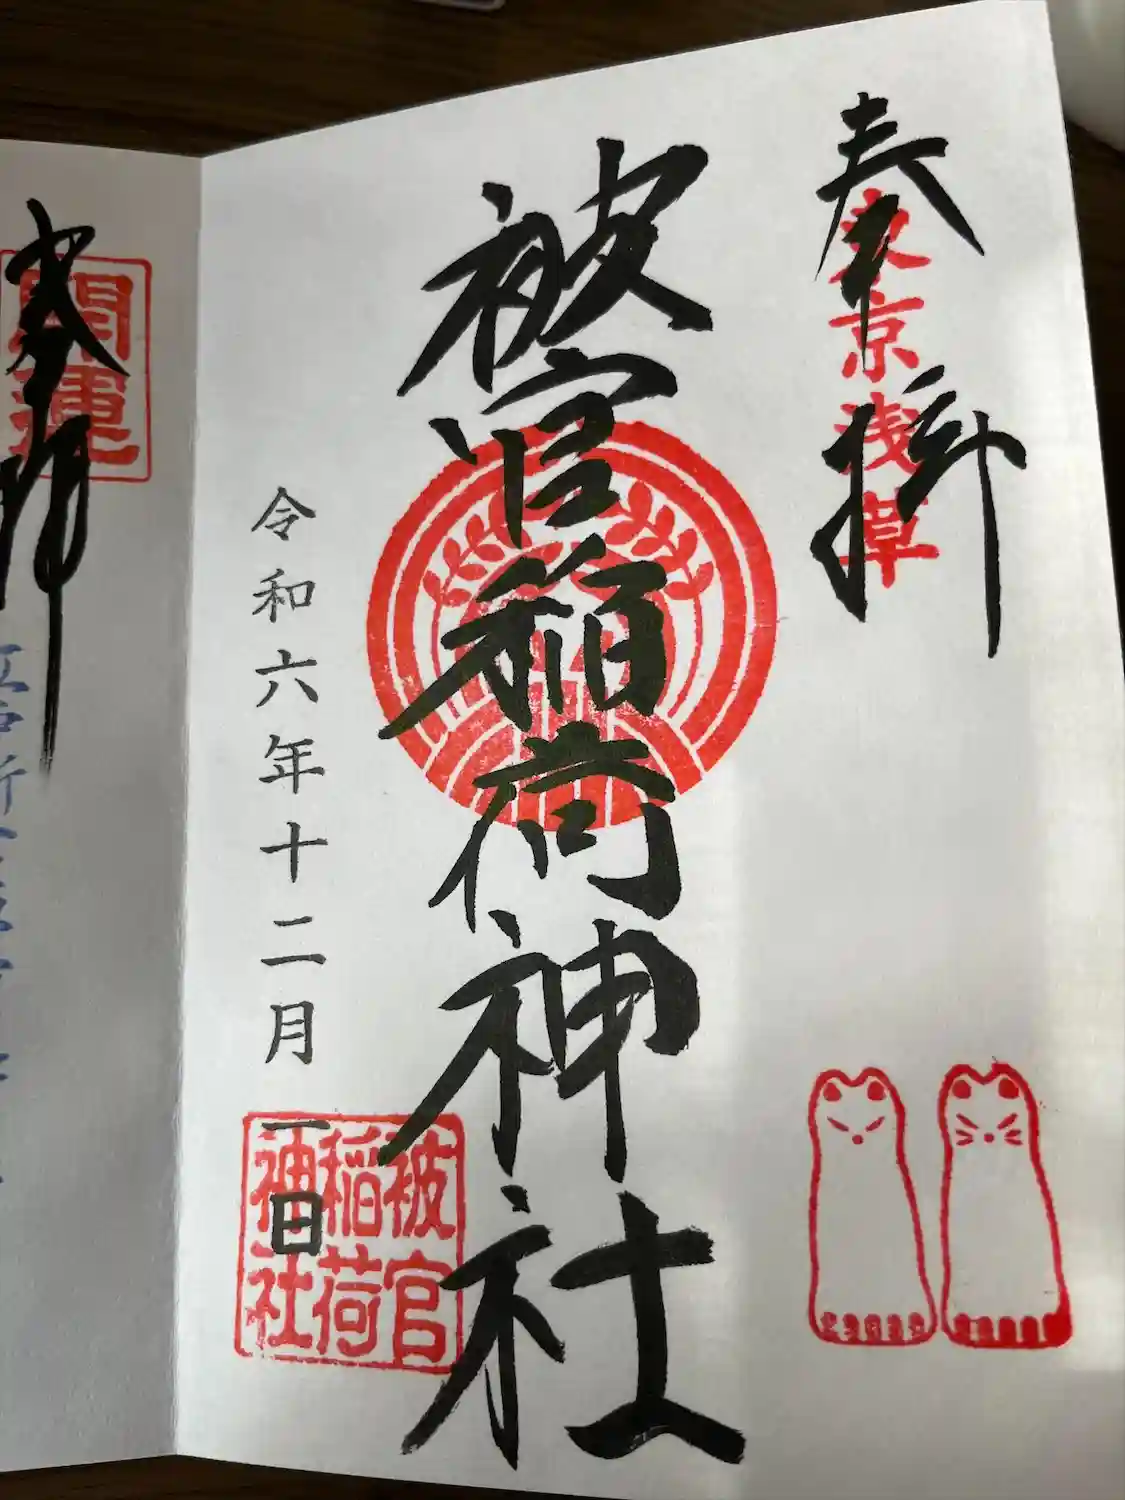 奉拝
東京浅草
被官稲荷神社
令和六年十二月一日
被官
稲荷
神社
奉拝
開運